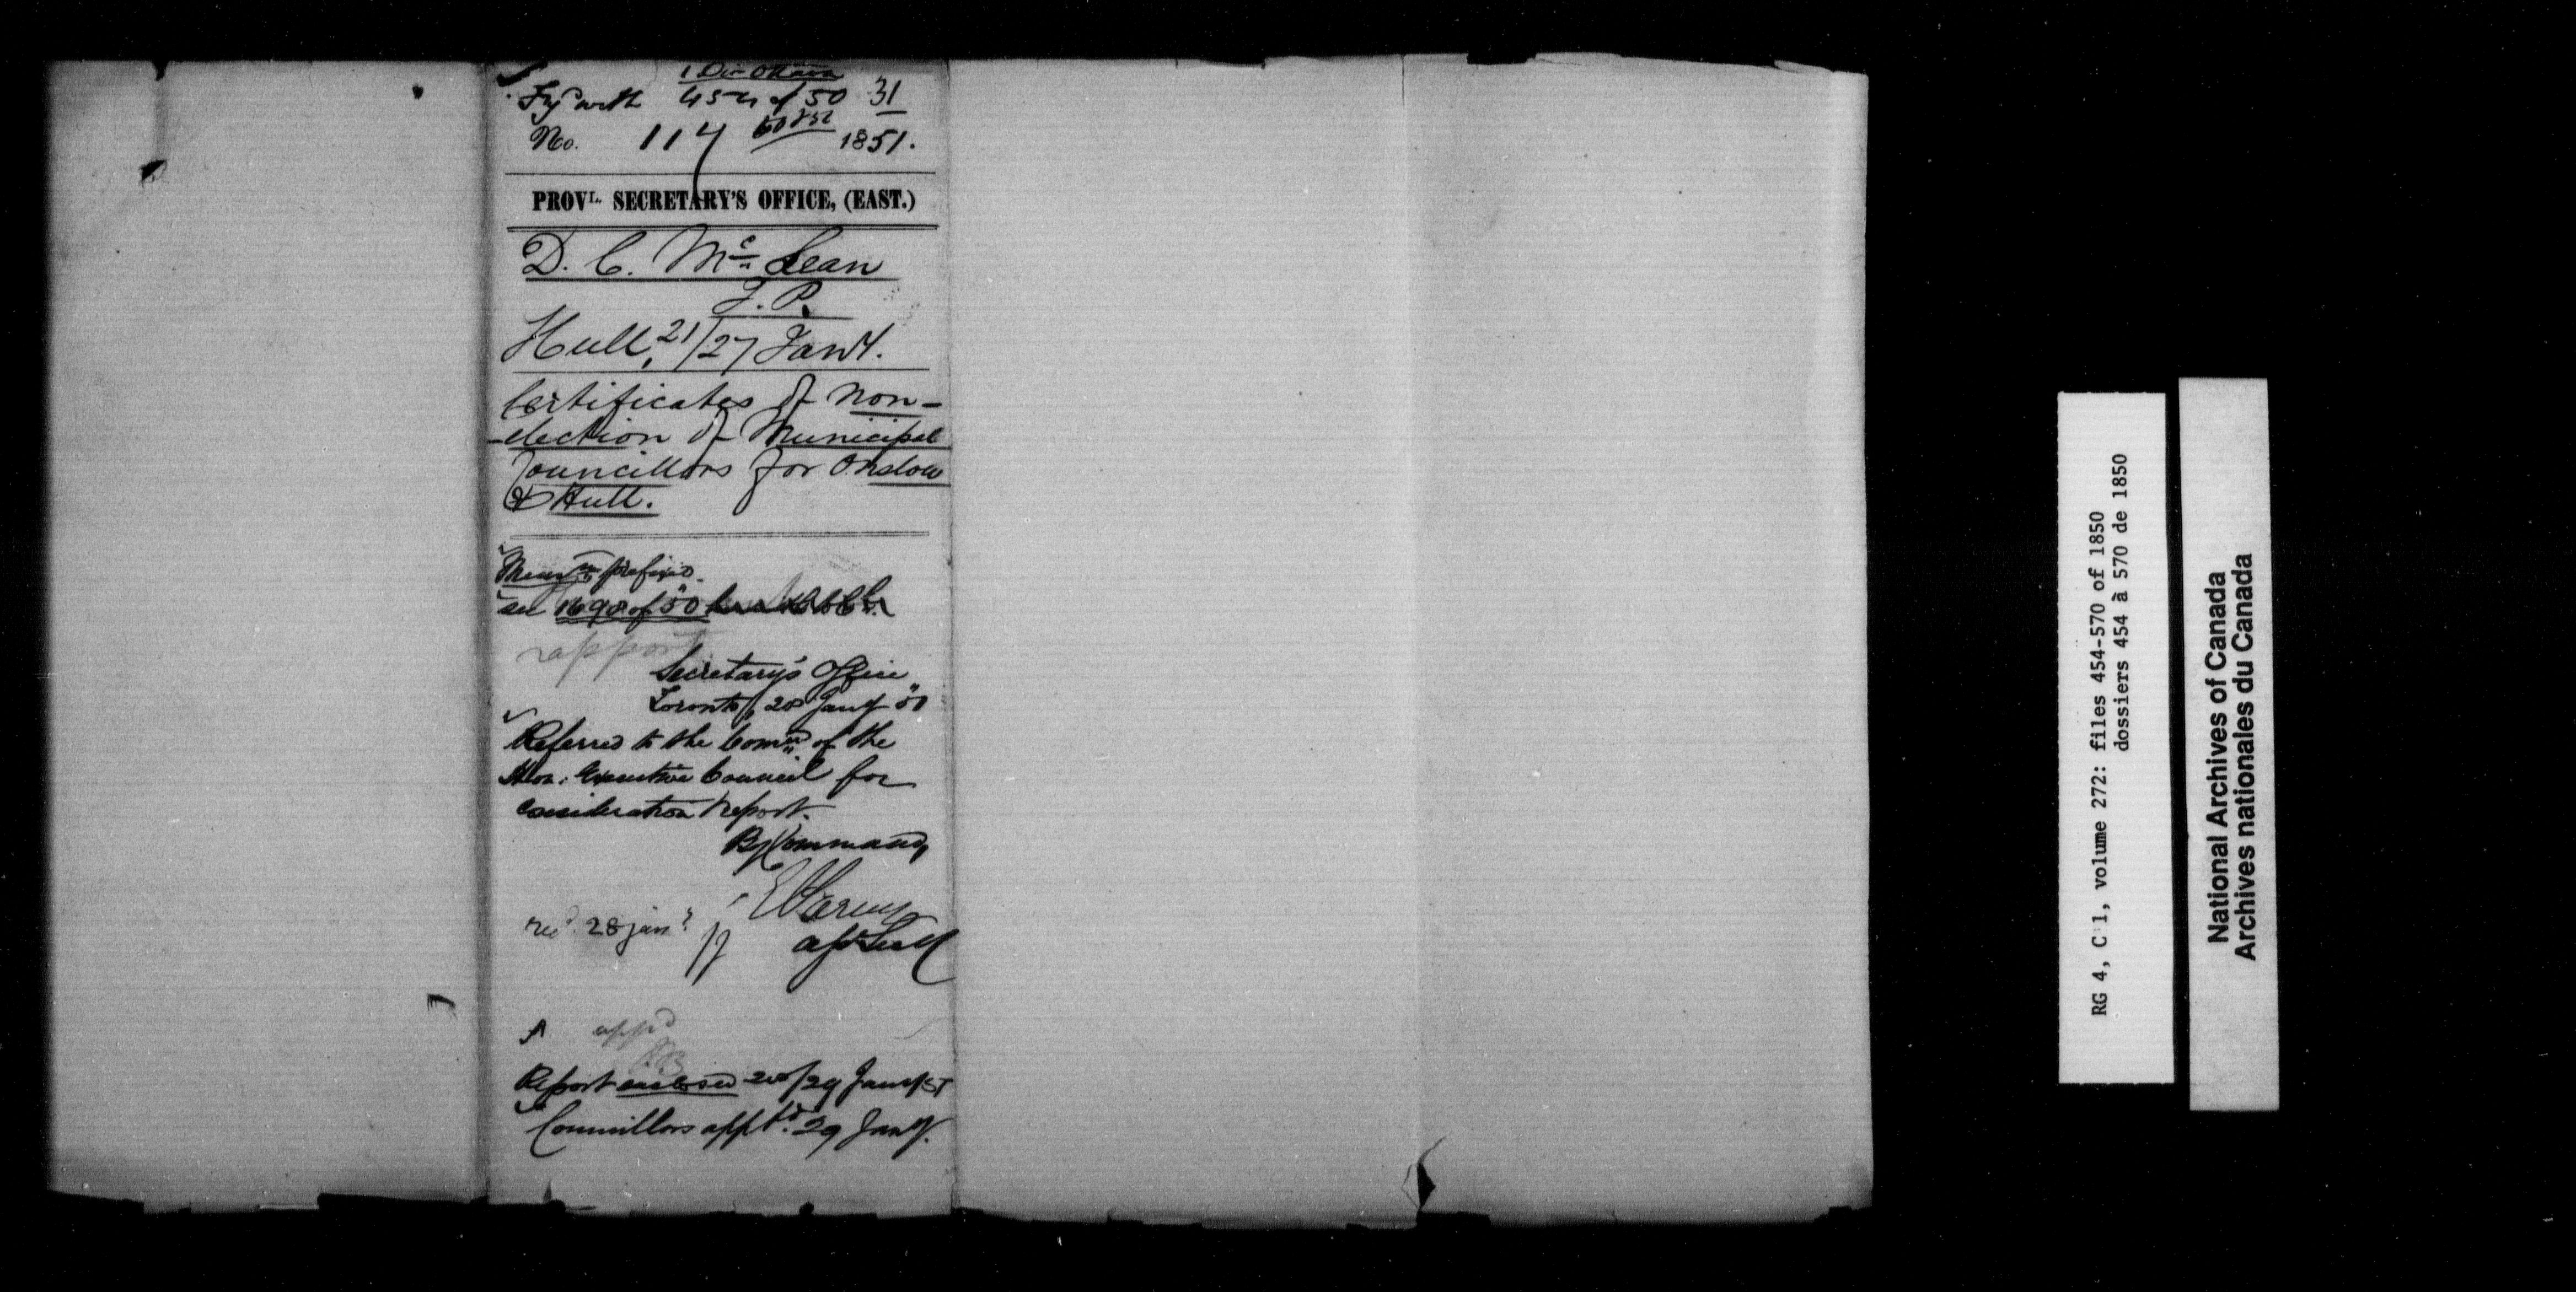 1 Div Ottawa
Fyd with 454 of 50 31
No. 114 1851.
PROVL. SECRETARY'S OFFICE, (EAST.)
D. C. Mc Lean
J. P.
Hull, 21/27 Jany.
Certificates of non-
-election of Municipal
Councillors for Onslow
& Hull.
prefixed.
see 1690 of 50
rapport
Secretary's Office
Toronto, 28 Jany 51
Referred to the Comee of the
Hon: Executive Council for
consideration & report.
By Command,
recd. 28 jany
Asst Secy
appd
Report enclosed 28/29 Jany/51
Councillors apptd. 29 Jany.
RG 4, C 1, volume 272: files 454-570 of 1850
dossiers 454 à 570 de 1850
National Archives of Canada
Archives nationales du Canada